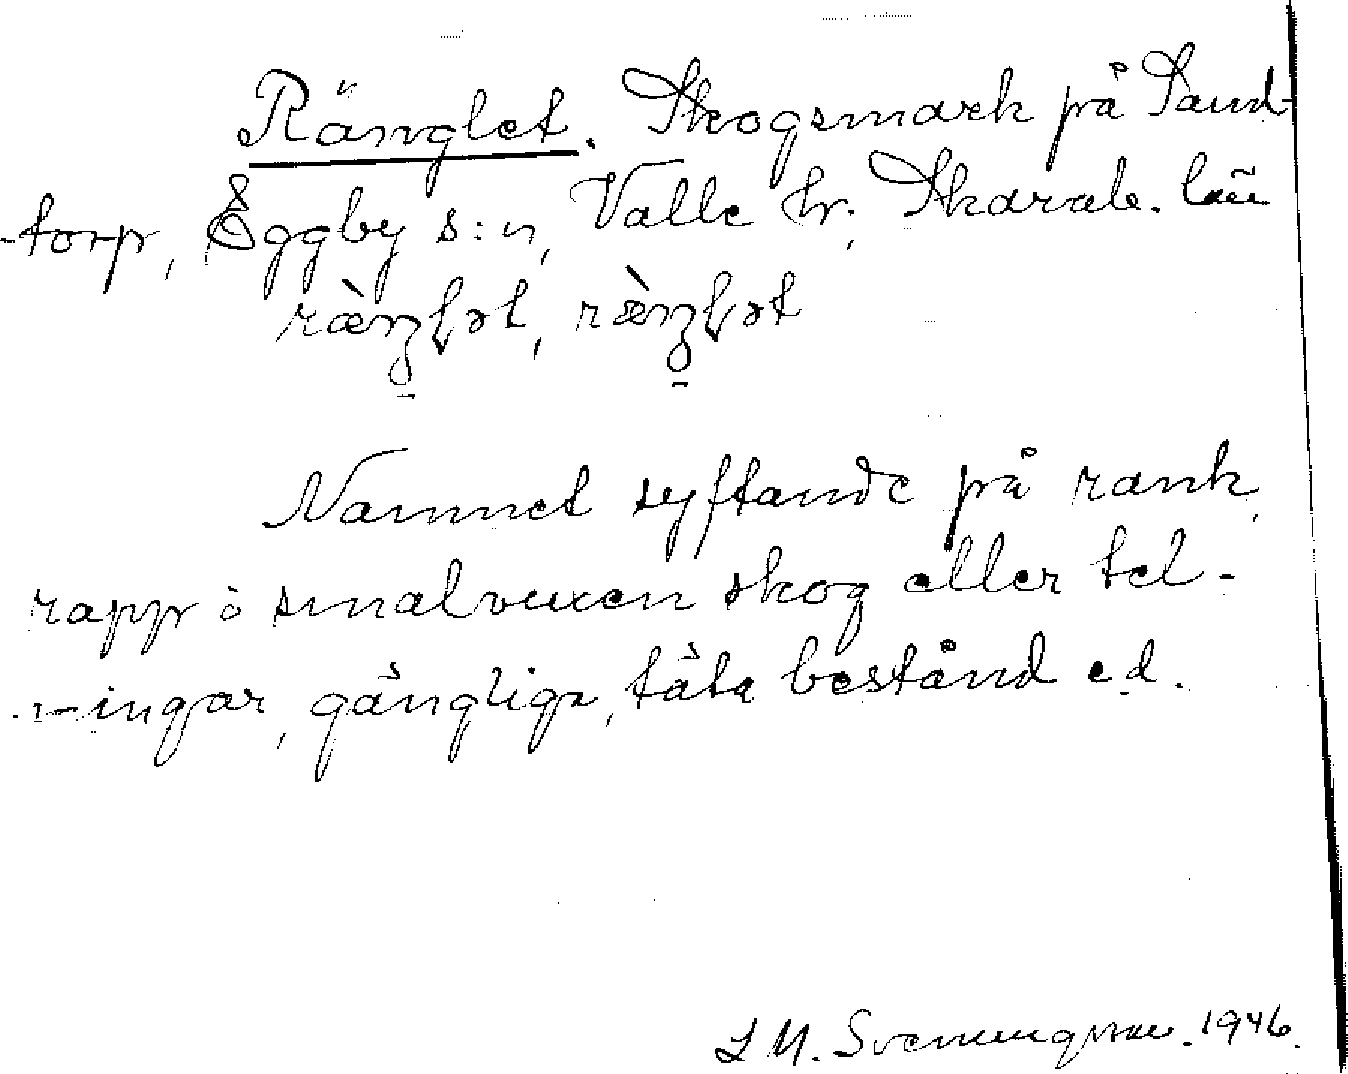 Ränglet. Skogsmark på Sand-
-torp, Eggby s:n, Valle hr, Skarab. län
Namnet syftande på rank,
rapp o smalvuxen skog eller tel-
-ningar, gängliga, täta bestånd e.d.
L M. Svenungsson. 1946.